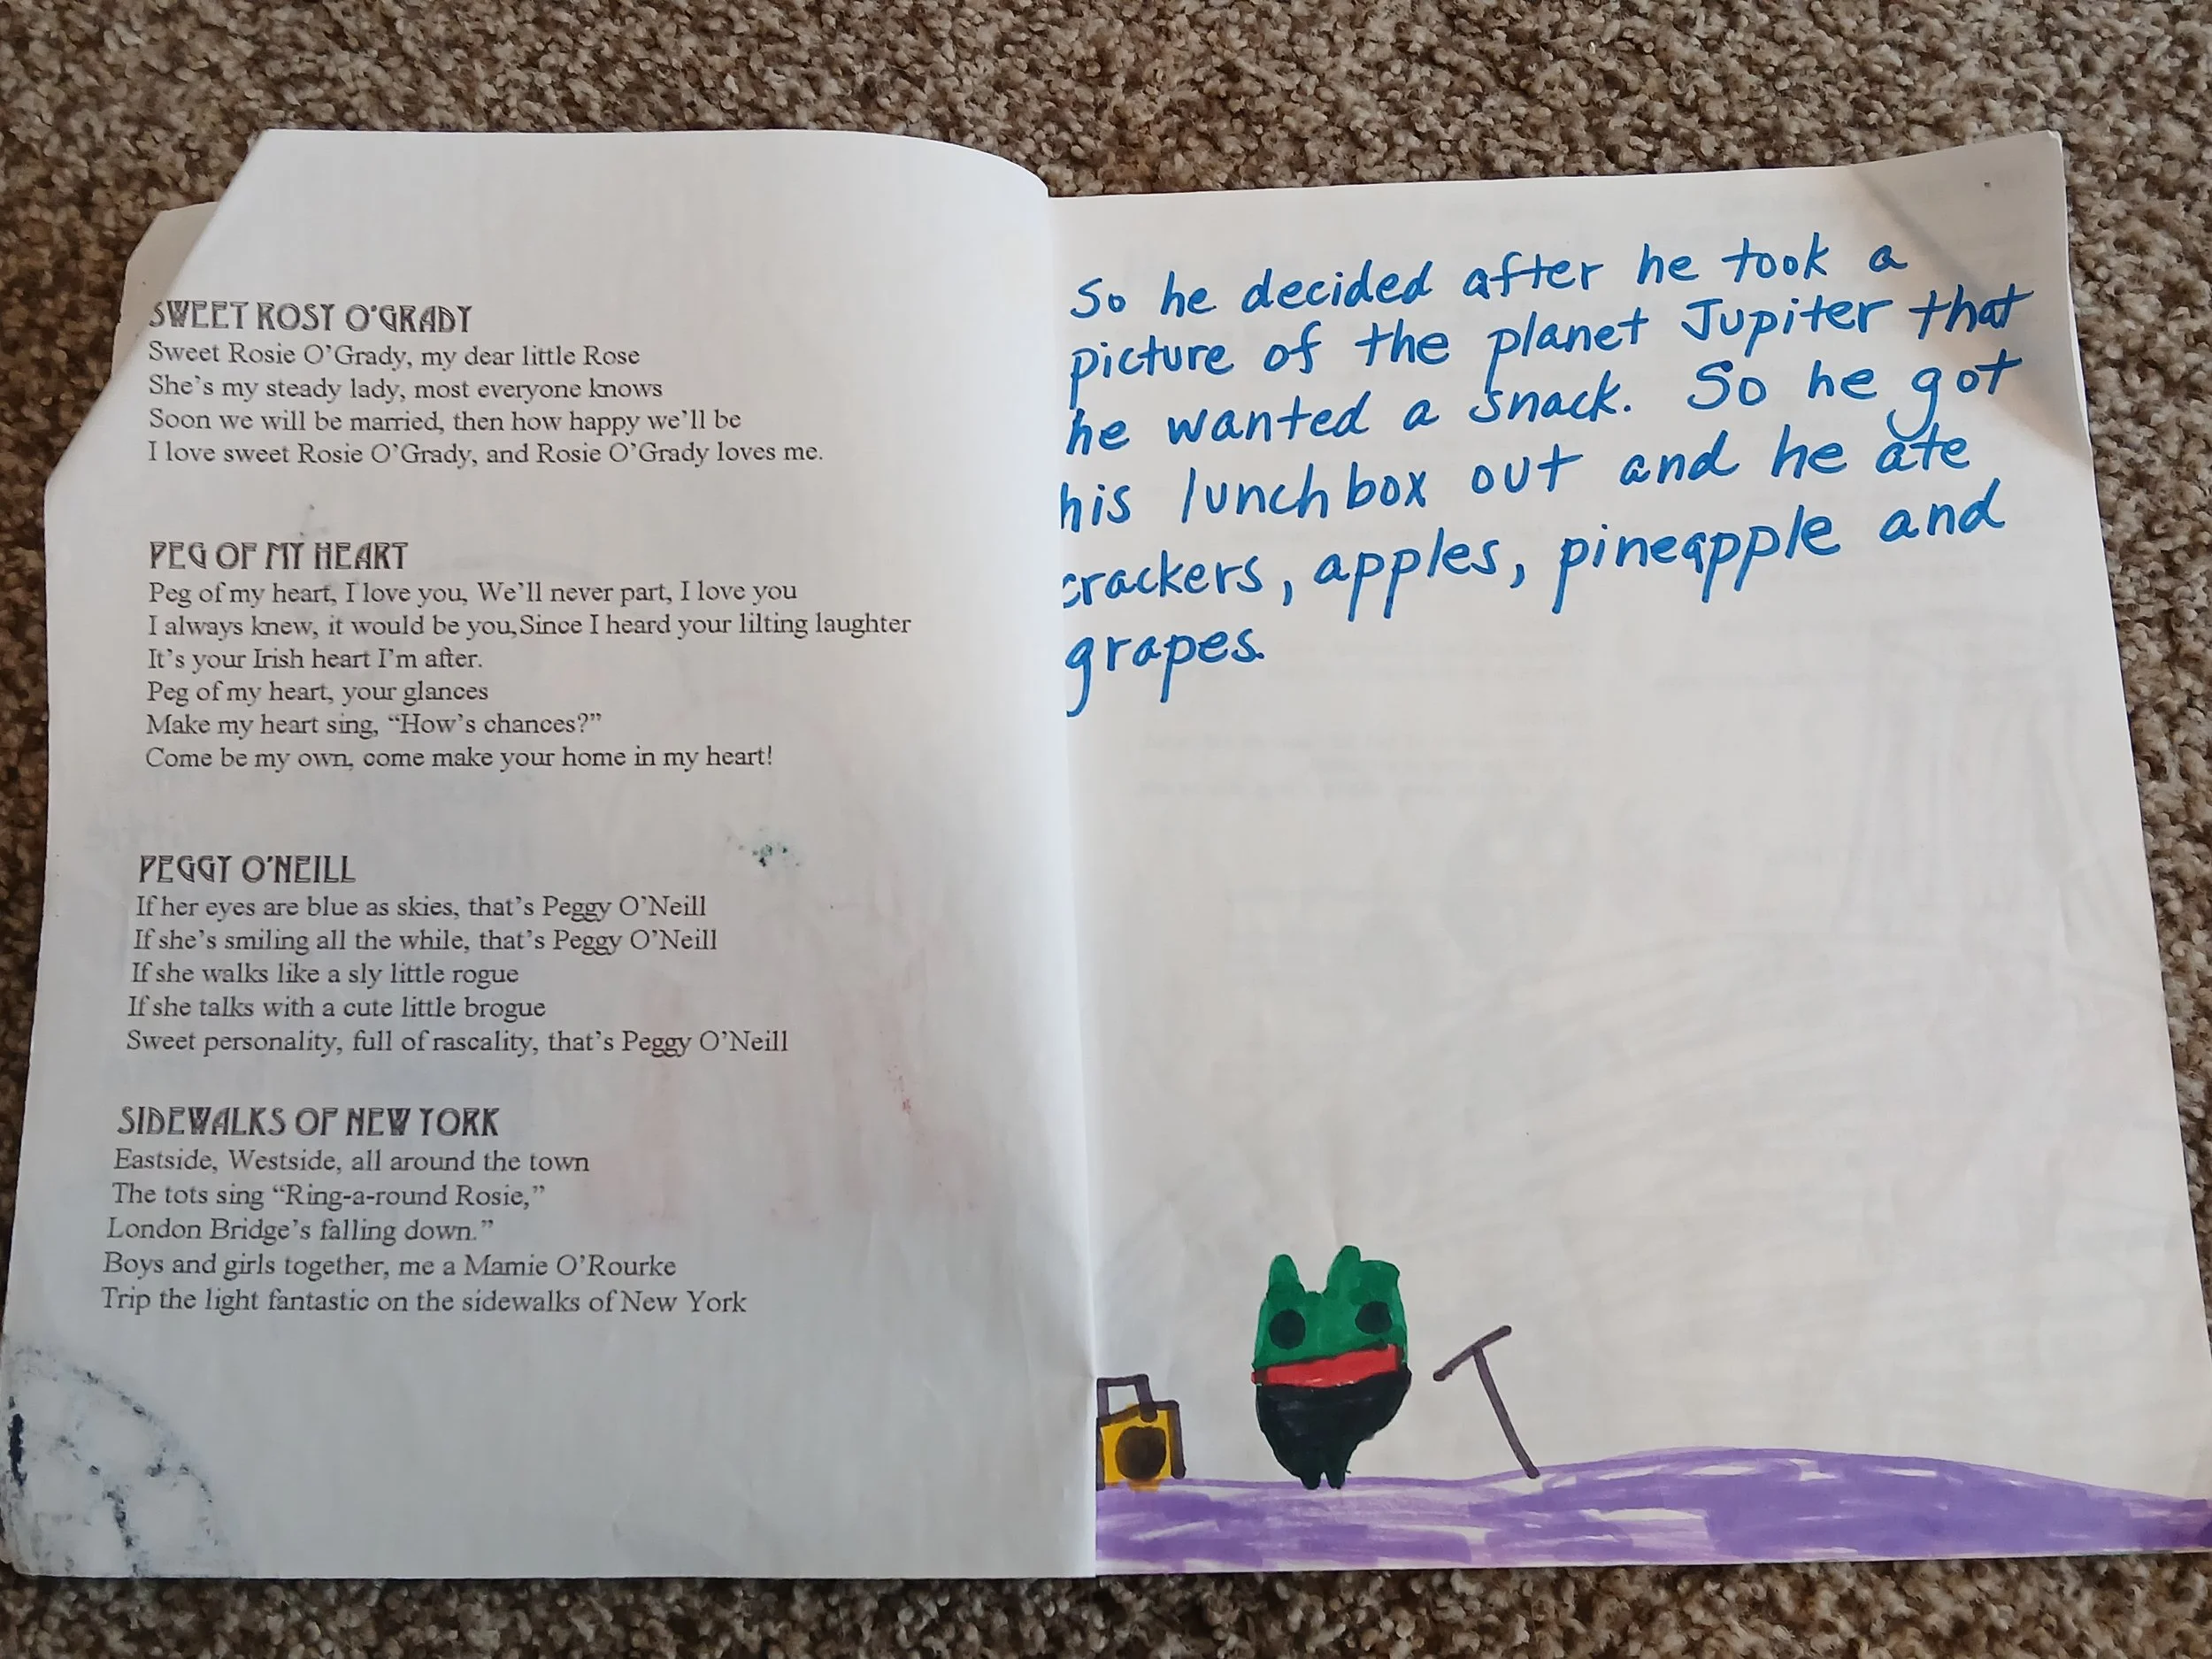 SWEET ROSY O'GRADY
Sweet Rosie O'Grady, my dear little Rose
She's my steady lady, most everyone knows
Soon we will be married, then how happy we'll be
I love sweet Rosie O'Grady, and Rosie O'Grady loves me.
PEG OF MY HEART
Peg of my heart, I love you, We'll never part, I love you
I always knew, it would be you,Since I heard your lilting laughter
It's your Irish heart I'm after.
Peg of my heart, your glances
Make my heart sing, “How's chances?”
Come be my own, come make your home in my heart!
PEGGY O'NEILL
If her eyes are blue as skies, that's Peggy O'Neill
If she's smiling all the while, that's Peggy O'Neill
If she walks like a sly little rogue
If she talks with a cute little brogue
Sweet personality, full of rascality, that's Peggy O'Neill
SIDEWALKS OF NEW YORK
Eastside, Westside, all around the town
The tots sing “Ring-a-round Rosie,”
London Bridge's falling down.”
Boys and girls together, me a Mamie O'Rourke
Trip the light fantastic on the sidewalks of New York
So he decided after he took a
picture of the planet Jupiter that
he wanted a snack. So he got
his lunchbox out and he ate
crackers, apples, pineapple and
grapes.